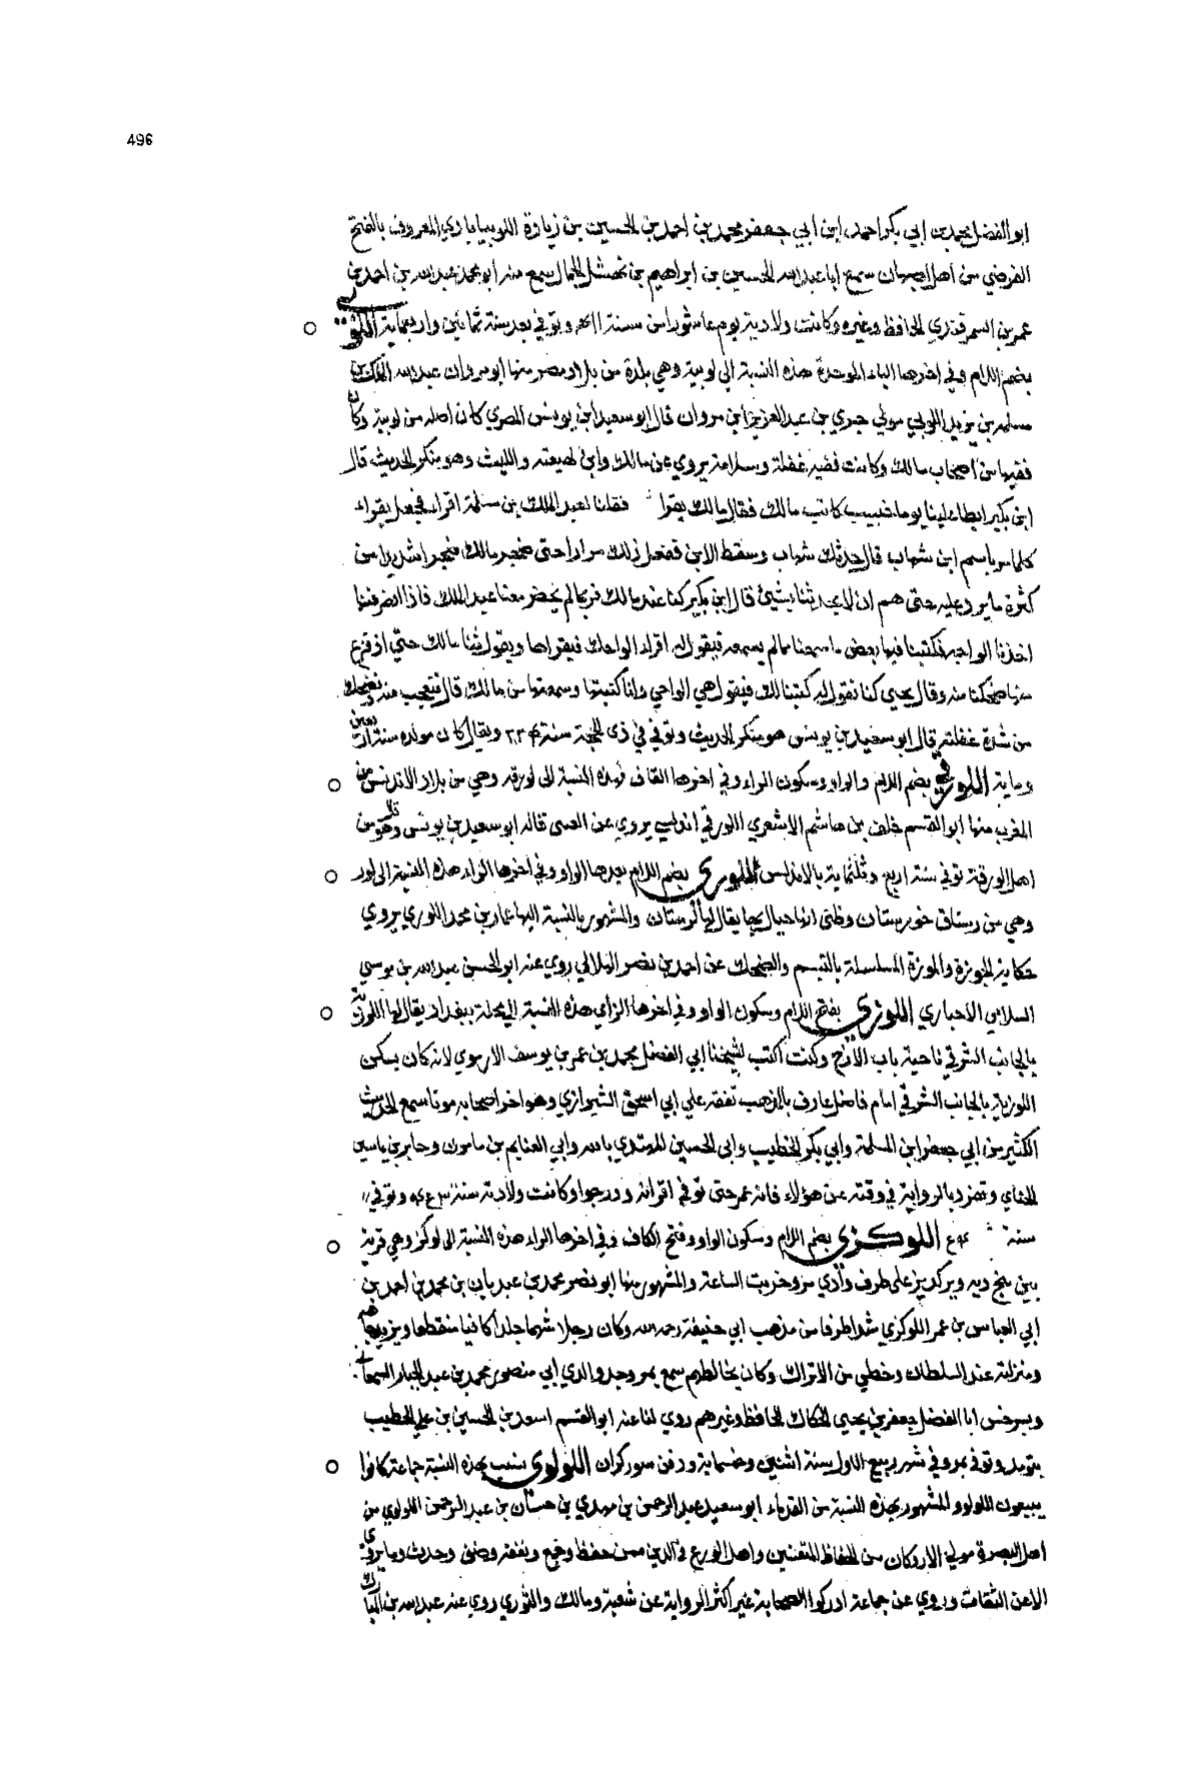 496
ابو الفضل محمد بن ابي بكر احمد ابن ابي جعفر محمد بن احمد بن الحسين بن زيادة اللوبياباذي المعروف بالفتح
الفرضي من اهل اصبهان سمع ابا عبد الله الحسين بن ابراهيم بن نهشل الجمال سمع منه ابو محمد عبد الله بن احمد بن
عمر بن السمرقندي الحافظ وغيره وكانت ولادته يوم عاشورا من سنة وتوفي بعد سنة ثمانين واربعماية اللوبي
بضم اللام وفي اخرها الباء الموحدة هذه النسبة الى لوبية وهي بلدة من بلاد مصر منها ابو مروان عبد الملك بن
مسلمة بن يزيد اللوبي مولي جبري بن عبد العزيز ابن مروان قال ابو سعيد ابن يونس المصري كان اصله من لوبية وكان
فقيها من اصحاب مالك وكانت فيه غفلة وسلامة يروي عن مالك وابن لهيعة والليث وهو منكر الحديث قال
ابن بكير ابطا علينا يوما حبيب كاتب مالك فقال مالك يقرا فقلنا لعبد الملك بن مسلمة اقراء فجعل يقراء
كلما مر باسم ابن شهاب قال حدثك شهاب وسقط الابن ففعل ذلك مرارا حتى ضجر مالك ضجرا شديدا من
كثرة ما يرد عليه حتى هم ان لا يحدثنا بشيئ قال ابن بكير كنا عند مالك فربما لم يحضر معنا عبد الملك فاذا انصرفنا
اخذنا الواحه فكتبنا فيها بعض ما سمعنا مما لم يسمعه فيقول له اقراء الواحك فيقراها ويقول ثنا مالك حتي اذ فرغ
منها ضحكنا منه وقال يحيي كنا نقول له كتبنا لك فيقول هي الواحي وانا كتبتها وسمعتها من مالك قال فنتعجب منه ونضحك
من شدة غفلته قال ابو سعيد بن يونس هو منكر الحديث وتوفي في ذي الحجة سنة ٢٢٤ ويقال كان مولده سنة اربعين
وماية اللورقي بضم اللام والواو وسكون الراء وفي اخرها القاف هذه النسبة الى لورقه وهي من بلاد الاندلس من
المغرب منها ابو القسم خلف بن هاشم الاشعري اللورقي اندلسي يروي عن العتبى قاله ابو سعيد بن يونس وقال هو من
اهل لورقة توفي سنة اربع وثلثماية بالاندلس اللوري بضم اللام بعدها الواو وفي اخرها الراء هذه النسبة الى لور
وهي من رستاق خورستان وظني انها جبال بها يقال لها لرستان والمشهور بالنسبة اليها عمار بن محمد اللوري يروي
حكاية الجوزة والموزة المسلسلة بالتبسم والضحك عن احمد بن نصر الهلالي روي عنه ابو الحسن عبد الله بن موسي
السلامي الاخباري اللوزي بفتح اللام وسكون الواو وفي اخرها الزاي هذه النسبة الي محلة ببغداد يقال لها اللوزية
بالجانب الشرقي ناحية باب الازج وكنت اكتب لشيخنا ابي الفضل محمد بن عمر بن يوسف الارموي لانه كان يسكن
اللوزية بالجانب الشرقي امام فاضل عارف بالمذهب تفقه علي ابي اسحق الشيرازي وهو اخر اصحابه موتا سمع الحديث
الكثير من ابي جعفر ابن المسلمة وابي بكر الخطيب وابي الحسين المهتدي بالله وابي الغنايم بن مامون وجابر بن ياسين
الحنائي وتفرد بالرواية في وقته عن هؤلاء فانه عمر حتى توفي اقرانه ودرجوا وكانت ولادته سنة وتوفي
سنة اللوكري بضم اللام وسكون الواو وفتح الكاف وفي اخرها الراء هذه النسبة الى لوكر وهي قرية
بين بنج ديه وبركديز على طرف وادي مرو خربت الساعة والمشهور منها ابو نصر محمد بن عبد بن محمد بن احمد بن
ابي العباس بن عمر اللوكري شدا طرفا من مذهب ابي حنيفة رحمه الله وكان رجلا شهما جلدا كافيا
ومنزلته عند السلطان وخطي من الاتراك وكان يخالطهم سمع بمرو جد والدي ابي منصور محمد بن عبد الجبار السمعاني
وبسرخس ابا الفضل جعفر بن يحيي الحكاك الحافظ وغيرهم روي لنا عنه ابو القسم اسعد بن الحسين بن علي الخطيب
وتوفي بمرو في شهر ربيع الاول سنة اثنتين وخمسماية ودفن سوركران اللولوي نسب بهذه النسبة جماعة كانوا
يبيعون اللولو والمشهور بهذه النسبة من القدماء ابو سعيد عبد الرحمن بن مهدي بن حسان بن عبد الرحمن اللولوي من
اهل البصرة مولي الازد وكان من الحفاظ المتقنين واهل الورع في الدين ممن حفظ وجمع وتفقه وصنف وحدث وما يروي
الا عن الثقات وروي عن جماعة ادركوا الصحابة غير اكثر الرواية عن شعبة ومالك والثوري روي عنه عبد الله بن المبارك